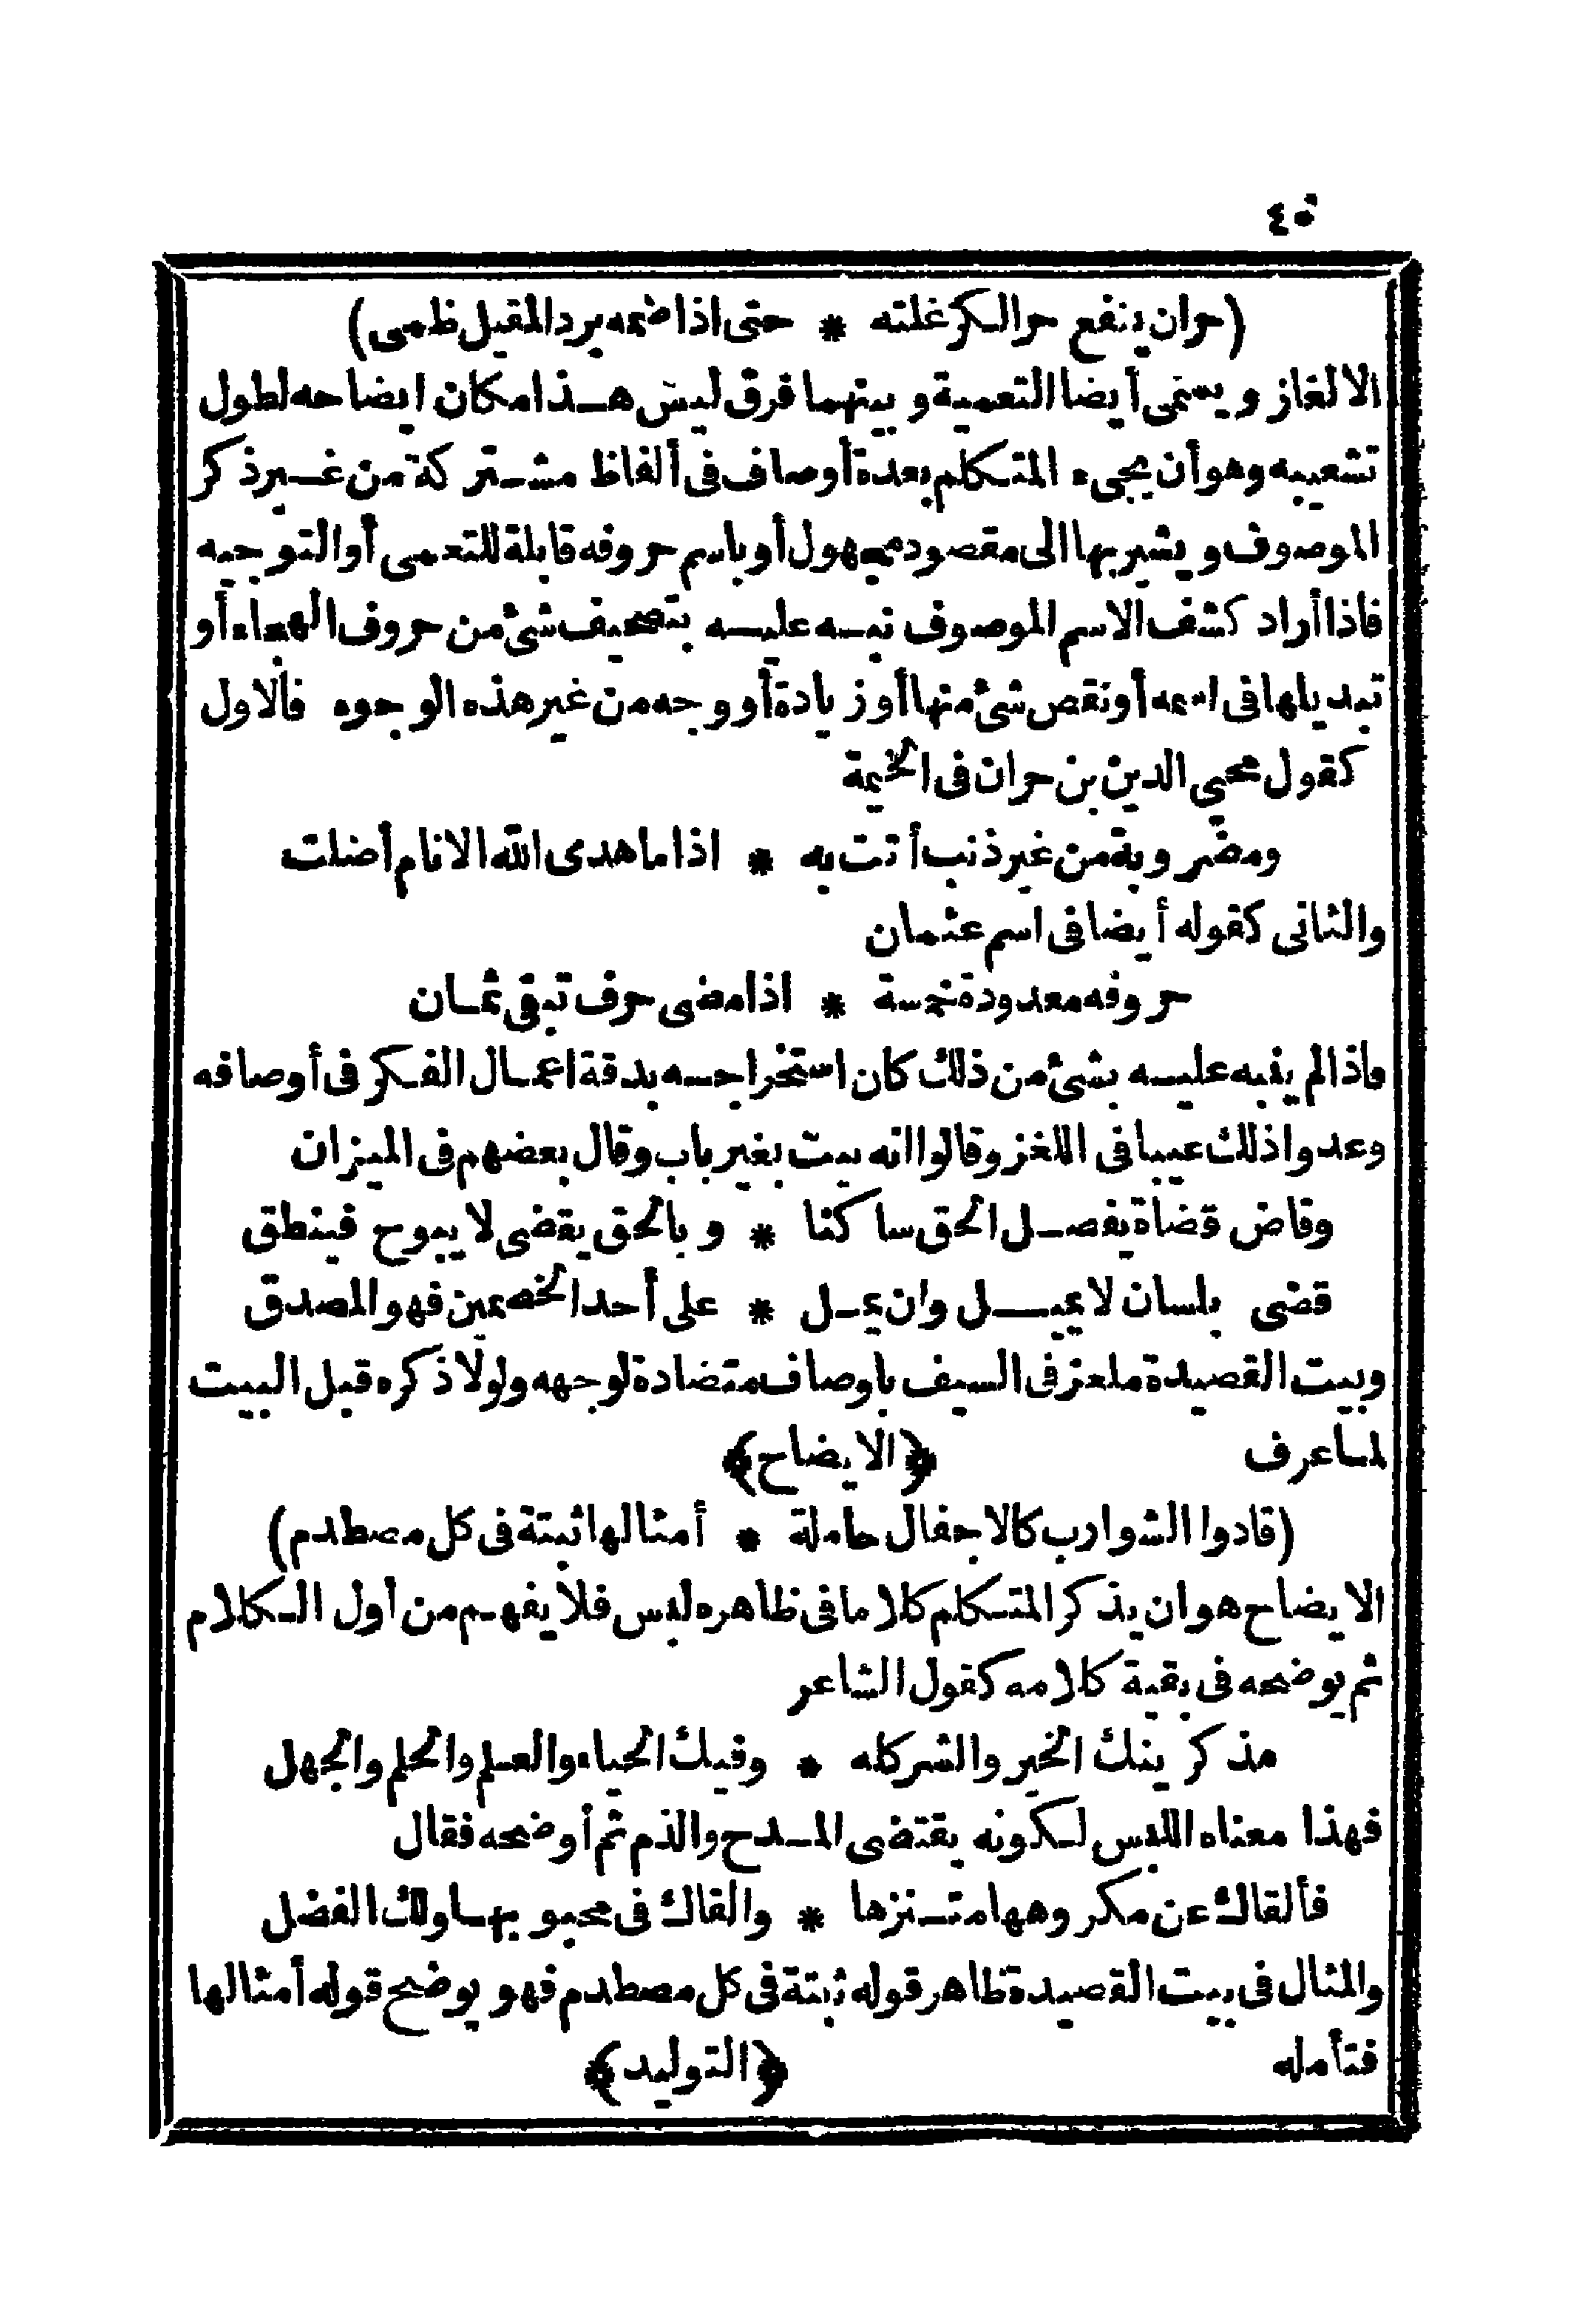 ٤٠
(حران ينقع حر الكر غلته * حتى اذا ضمه برد المقيل ظمى)
الالغاز ويسمى أيضا التعمية وبينهما فرق ليس هذا مكان ايضاحه لطول
تشعيبه وهو أن يجىء المتكلم بعدة أوصاف فى ألفاظ مشتركة من غير ذكر
الموصوف ويشير بها الى مقصود مجهول أو باسم حروفه قابلة للتعمى أو التوجيه
فاذا أراد كشف الاسم الموصوف نبه عليه بتصحيف شئ من حروف الهجاء أو
تبديلها فى اسمه أو نقص شئ منها أو زيادة أو وجه من غير هذه الوجوه فالاول
كقول محيي الدين بن حران فى الخيمة
ومضروبة من غير ذنب أتت به * اذا ما هدى الله الانام أضلت
والثانى كقوله أيضا فى اسم عثمان
حروفه معدودة خمسة * اذا مضى حرف تبقى ثمان
واذا لم ينبه عليه بشئ من ذلك كان استخراجه بدقة اعمال الفكر فى أوصافه
وعدوا ذلك عيبا فى اللغز وقالوا انه بيت بغير باب وقال بعضهم فى الميزان
وقاض قضاة يفصل الحق ساكنا * وبالحق يقضى لا يبوح فينطق
قضى بلسان لا يميل وان يمل * على أحد الخصمين فهو المصدق
وبيت القصيدة ملغز فى السيف باوصاف متضادة لوجهه ولولا ذكره قبل البيت
لما عرف ﴿الايضاح﴾
(قادوا الشوارب كالاجفال حاملة * أمثالها ثبتة فى كل مصطدم)
الايضاح هو ان يذكر المتكلم كلاما فى ظاهره لبس فلا يفهم من أول الكلام
ثم يوضحه فى بقية كلامه كقول الشاعر
مذكرينك الخير والشر كله * وفيك الحياء والعلم والحلم والجهل
فهذا معناه اللبس لكونه يقتضى المدح والذم ثم أوضحه فقال
فألقاك عن مكروهها متنزها * والقاك فى محبوبها ولك الفضل
والمثال فى بيت القصيدة ظاهر قوله ثبتة فى كل مصطدم فهو يوضح قوله أمثالها
فتأمله ﴿التوليد﴾